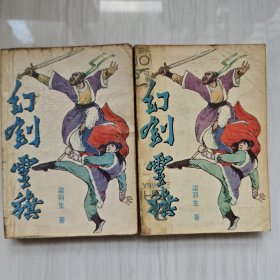 幻剑靈旗
梁羽生 著
幻剑靈旗
梁羽生 著